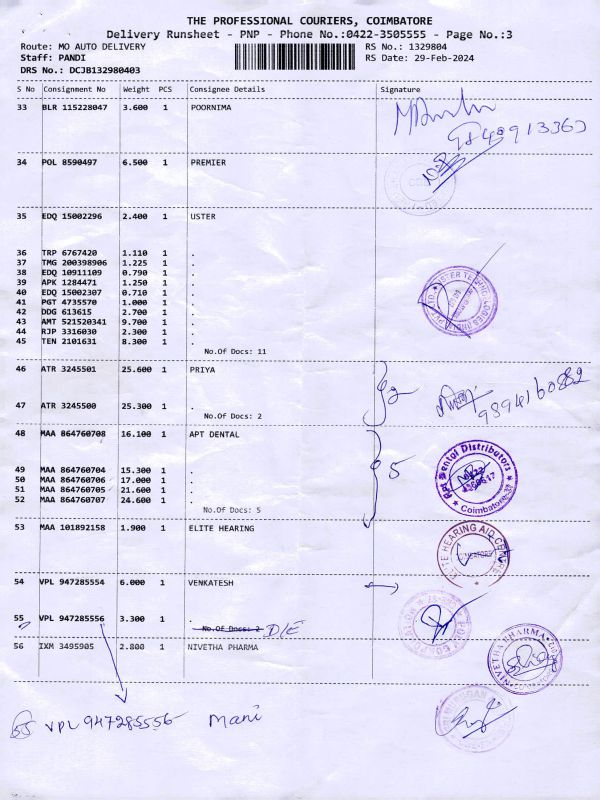 THE PROFESSIONAL COURIERS, COIMBATORE
Delivery Runsheet - PNP - Phone No.:0422-3505555 - Page No.:3
Route: MO AUTO DELIVERY RS No.: 1329804
Staff: PANDI RS Date: 29-Feb-2024
DRS No.: DCJB132980403
S No Consignment No Weight PCS Consignee Details Signature
33 BLR 115228047 3.600 1 POORNIMA
34 POL 8590497 6.500 1 PREMIER
35 EDQ 15002296 2.400 1 USTER
36 TRP 6767420 1.110 1 .
37 TMG 200398906 1.225 1 .
38 EDQ 10911109 0.790 1 .
39 APK 1284471 1.250 1 .
40 EDQ 15002307 0.710 1 .
41 PGT 4735570 1.000 1 .
42 DDG 613615 2.700 1 .
43 AMT 521520341 9.700 1 .
44 RJP 3316030 2.300 1 .
45 TEN 2101631 8.300 1 .
No.Of Docs: 11
46 ATR 3245501 25.600 1 PRIYA
2
9894160882
47 ATR 3245500 25.300 1 .
No.Of Docs: 2
48 MAA 864760708 16.100 1 APT DENTAL
5
Apt Dental Distributors
Coimbatore
49 MAA 864760704 15.300 1 .
50 MAA 864760706 17.000 1 .
51 MAA 864760705 21.600 1 .
52 MAA 864760707 24.600 1 .
No.Of Docs: 5
53 MAA 101892158 1.900 1 ELITE HEARING
ELITE HEARING AID CENTRE
54 VPL 947285554 6.000 1 VENKATESH
55 VPL 947285556 3.300 1 .
No.Of Docs: 2 D/E
56 IXM 3495905 2.800 1 NIVETHA PHARMA
NIVETHA PHARMA
55 VPL 947285556 Mani